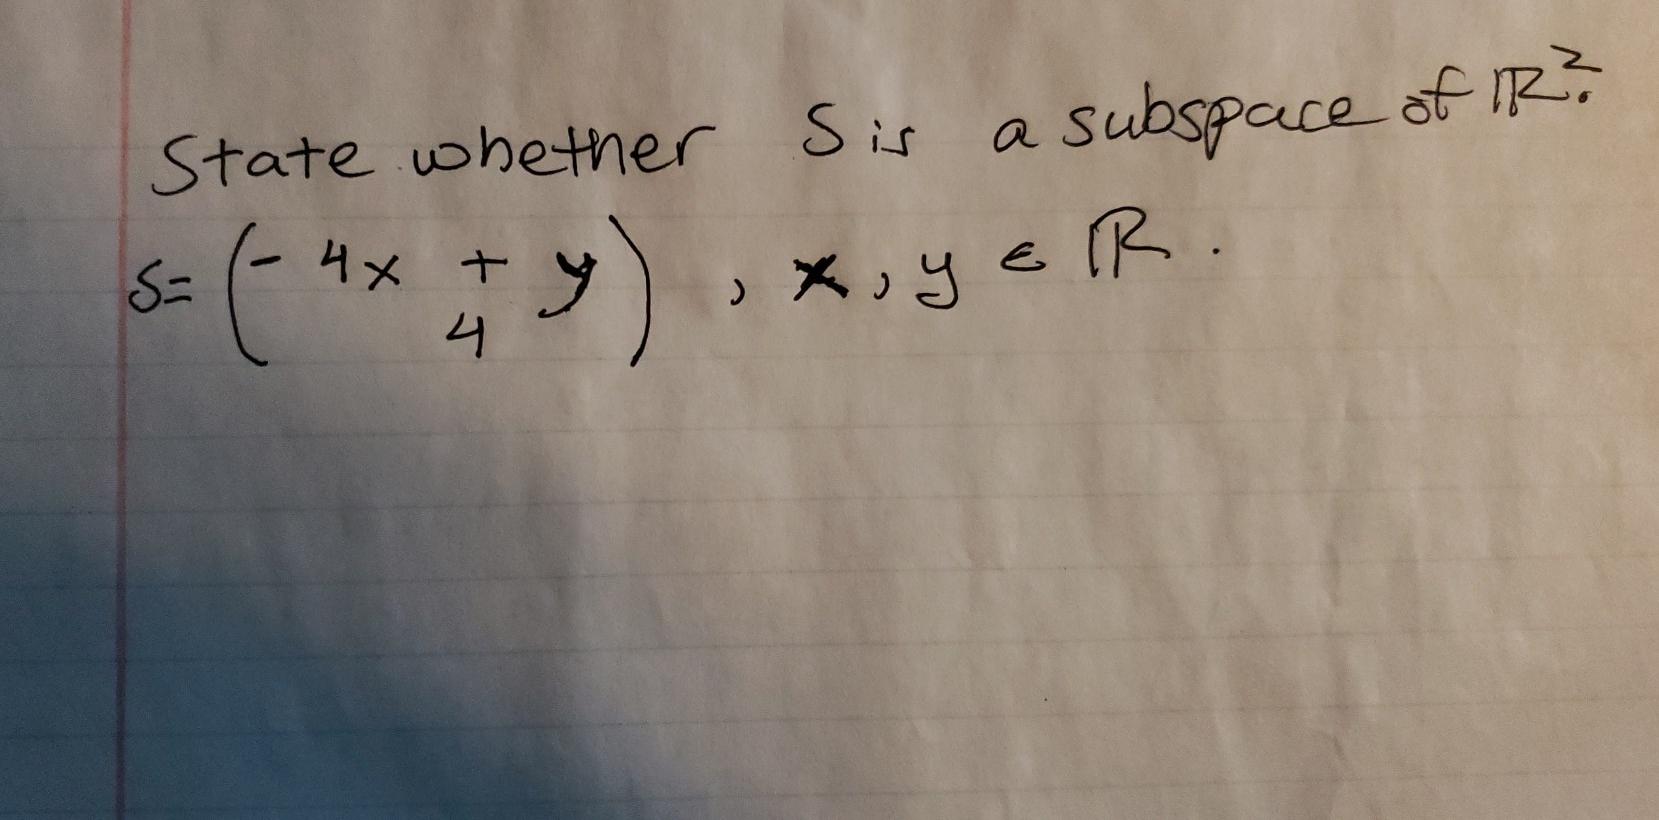 State whether S is a subspace of ℝ².
S= (- 4x + y) , x, y ∈ ℝ.
4